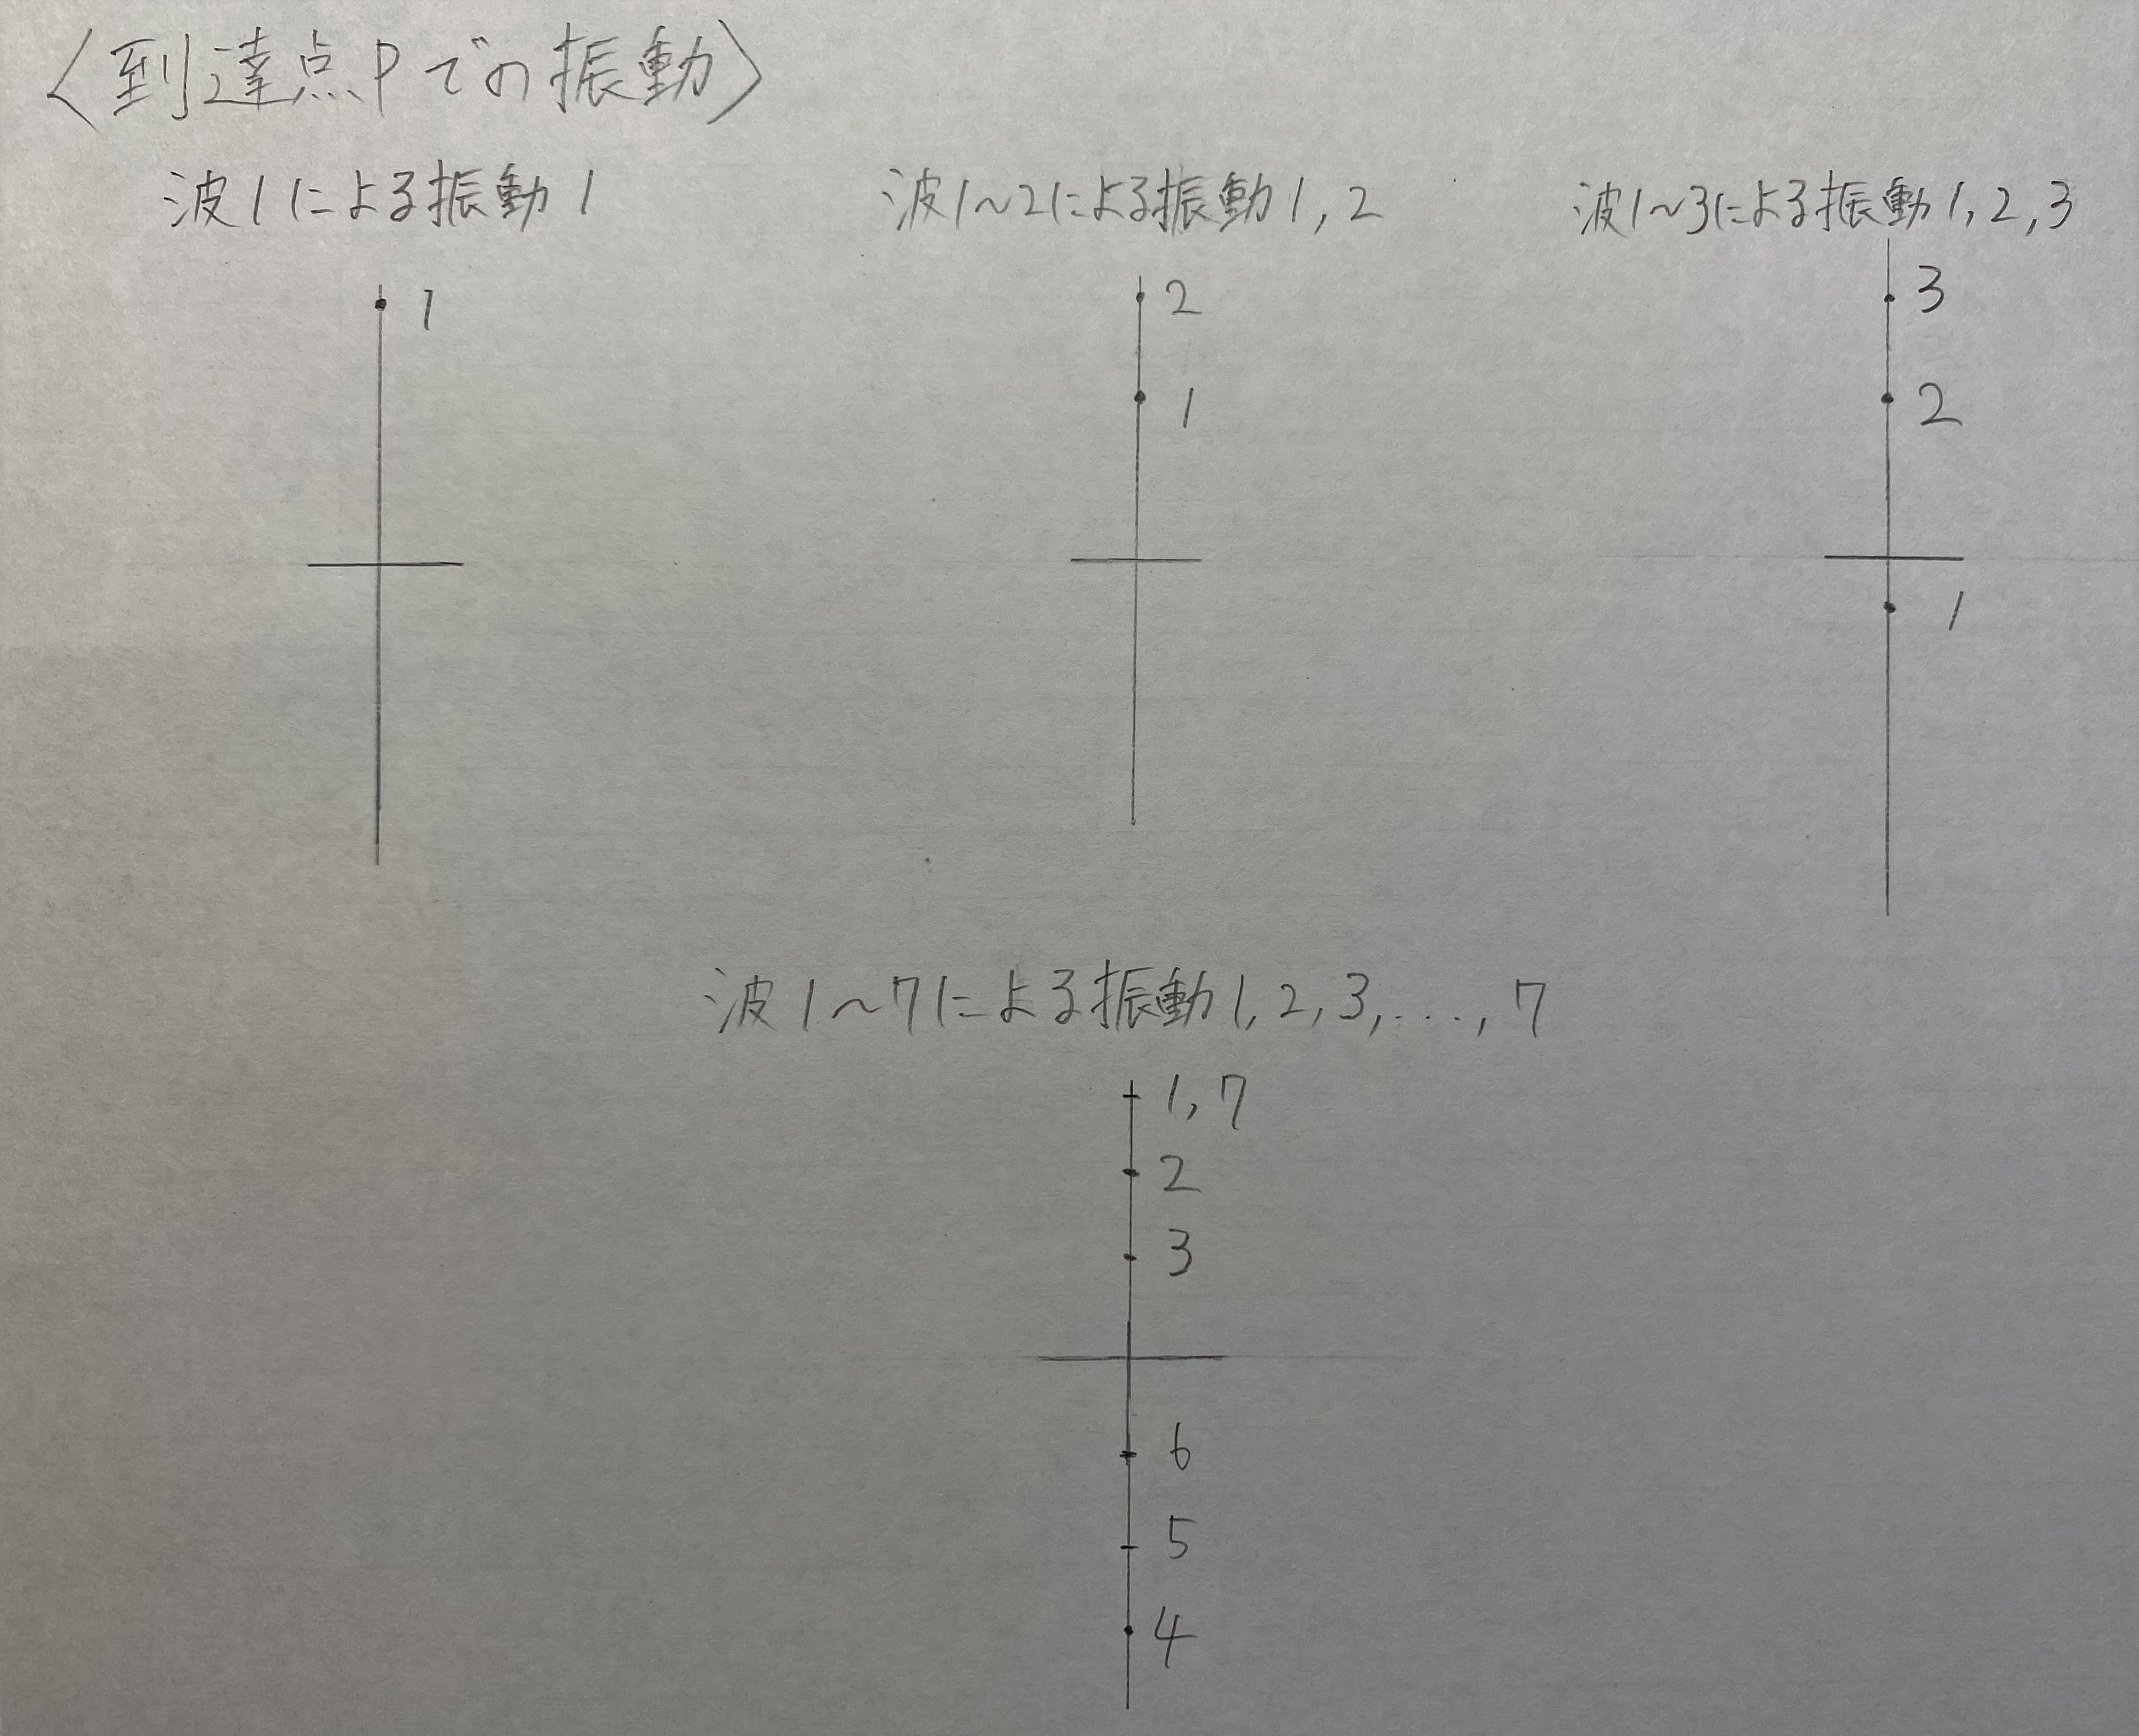 〈到達点Pでの振動〉
波1による振動1
1
波1~2による振動1,2
2
1
波1~3による振動1,2,3
3
2
1
波1~7による振動1,2,3,...,7
1,7
2
3
6
5
4